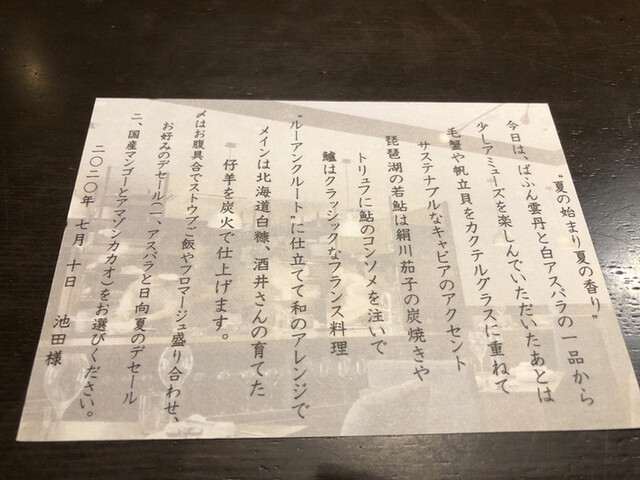 "夏の始まり夏の香り"
今日は、ばふん雲丹と白アスパラの一品から
少しアミューズを楽しんでいただいたあとは
毛蟹や帆立貝をカクテルグラスに重ねて
サステナブルなキャビアのアクセント
琵琶湖の若鮎は絹川茄子の炭焼きや
トリュフに鮎のコンソメを注いで
鱸はクラッシックなフランス料理
"ルーアンクルート"に仕立てて和のアレンジで
メインは北海道白糠、酒井さんの育てた
仔羊を炭火で仕上げます。
〆はお腹具合でストウブご飯やフロマージュ盛り合わせ、
お好みのデセール(一、アスパラと日向夏のデセール
二、国産マンゴーとアマゾンカカオ)をお選びください。
二〇二〇年 七月 十日 池田様